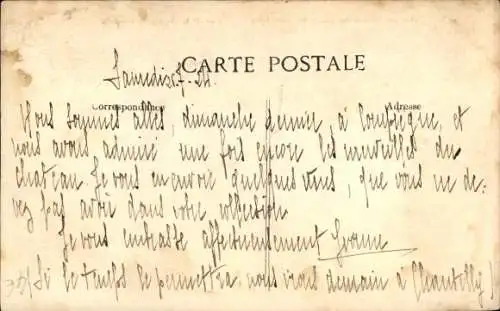 CARTE POSTALE
Samedi
Correspondance
Adresse
Nous sommes allés, dimanche dernier, à Compiègne, et
nous avons admiré une fois encore les merveilles du
chateau. Je vous en envoie quelques unes, que vous ne de-
vez pas avoir dans votre collection.
Je vous embrasse affectueusement Yvonne
Si le temps le permettra, nous irons demain à Chantilly